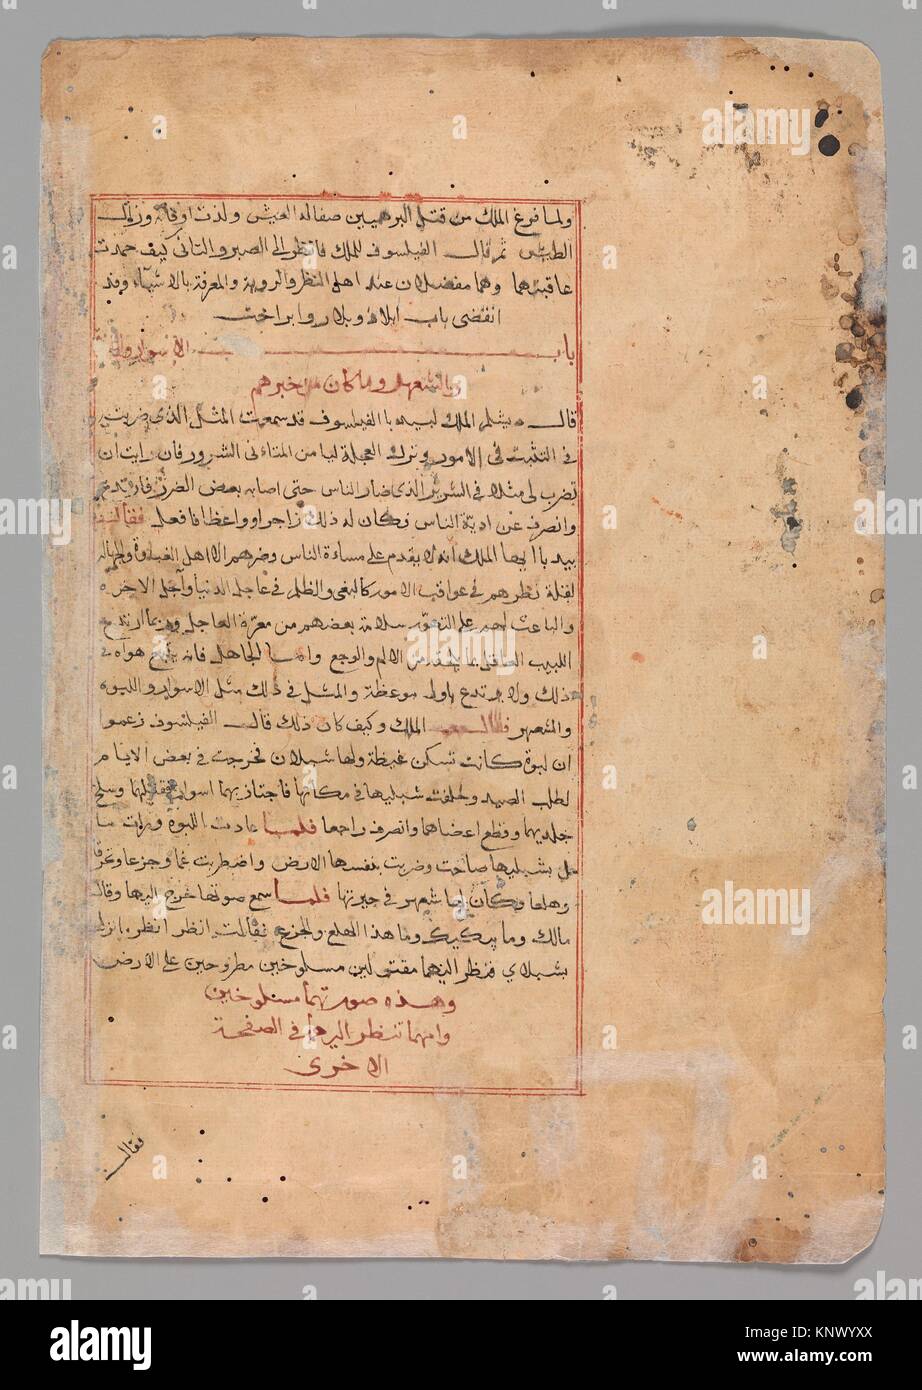 ولما فرغ الملك من قتل البرهميين صفا له العيش ولذت اوقاته وزال
الطيش ثم قال الفيلسوف للملك فانظر الى الصبر والتانى كيف حمدت
عاقبتهما وهما مفضلان عند اهل النظر والروية والمعرفة بالاشيآء وقد
انقضى باب ابلاد وبلار وابراخت
باب الاسوار واللبوة
والشعهر وما كان من خبرهم
قال دبشلم الملك لبيدبا الفيلسوف قد سمعت المثل الذى ضربت
فى التثبت فى الامور وترك العجلة لها من المتاتى الشرور فان رايت ان
تضرب لى مثلا فى الشرير الذى ضار الناس حتى اصابه بعض الضرر فارتدع
وانصرف عن اذية الناس وكان له ذلك زاجرا وواعظا فافعل فقال
بيدبا ايها الملك انه لا يقدم على مساءة الناس وضرهم الا اهل الغباوة والجهالة
لقلة نظرهم فى عواقب الامور كالبغى والظلم فى عاجل الدنيا وآجل الاخرة
والباعث لهم على التعود سلامة بعضهم من معرة العاجل وربما ارتدع
اللبيب العاقل بما من الالم والوجع واما الجاهل فانه يتبع هواه فى
ذلك ولا يرتدع باول موعظة والمثل فى ذلك مثل الاسوار واللبوة
والشعهر قال الملك وكيف كان ذلك قال الفيلسوف زعموا
ان لبوة كانت تسكن غيضة ولها شبلان فخرجت فى بعض الايام
لطلب الصيد وخلفت شبليها فى مكانها فاجتاز بهما اسوار فقتلهما وسلخ
جلديهما وقطع اعضاهما وانصرف راجعا فلما عادت اللبوة ورات ما
حل بشبليها صاحت وضربت بنفسها الارض واضطربت غما وجزعا وحرقا
وهلعا وكان لها شعهر فى جيرتها فلما سمع صوتها خرج اليها وقال
مالك وما يبكيك وما هذا الهلع والجزع فقالت انظر انظر ما نزل
بشبلاي فنظر اليهما مقتولين مسلوخين مطروحين على الارض
وهذه صورتهما مسلوخين
وامهما تنظر اليهما فى الصفحة
الاخرى
فقال
alamy
Image ID: KNWXXX
www.alamy.com